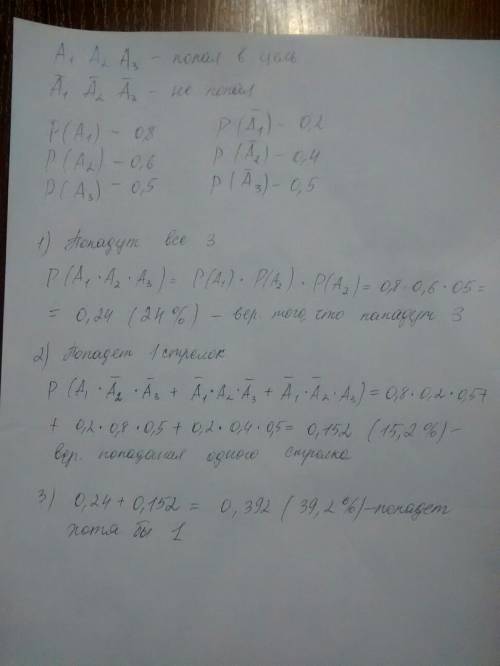 A₁ A₂ A₃ – попал в цель
Ā₁ Ā₂ Ā₃ – не попал
P(A₁) – 0,8 P(Ā₁) – 0,2
P(A₂) – 0,6 P(Ā₂) – 0,4
P(A₃) – 0,5 P(Ā₃) – 0,5
1) Попадут все 3
P(A₁·A₂·A₃) = P(A₁)·P(A₂)·P(A₂) = 0,8·0,6·05 =
= 0,24 (24%) – вер. того, что пападут 3
2) Попадет 1 стрелок
P(A₁·Ā₂·Ā₃ + Ā₁·A₂·Ā₃ + Ā₁·Ā₂·A₃) = 0,8·0,2·0,5+
+ 0,2·0,8·0,5 + 0,2·0,4·0,5 = 0,152 (15,2%) –
вер. попадания одного стрелка
3) 0,24 + 0,152 = 0,392 (39,2%) – попадет
хотя бы 1